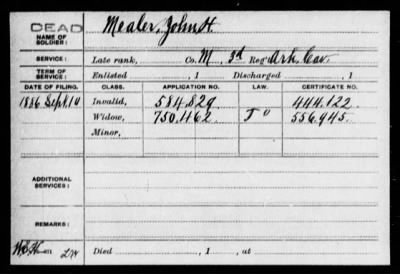 DEAD
NAME OF SOLDIER: Mealer, John H.
SERVICE: Late rank, Co. M, 3d Reg't Ark. Cav.
TERM OF SERVICE: Enlisted , 1 Discharged , 1
DATE OF FILING. CLASS. APPLICATION NO. LAW. CERTIFICATE NO.
1886 Sept. 10 Invalid, 584.829 444.122
Widow, 750.462 J" 556.945
Minor,
ADDITIONAL SERVICES:
REMARKS:
Died , 1 , at